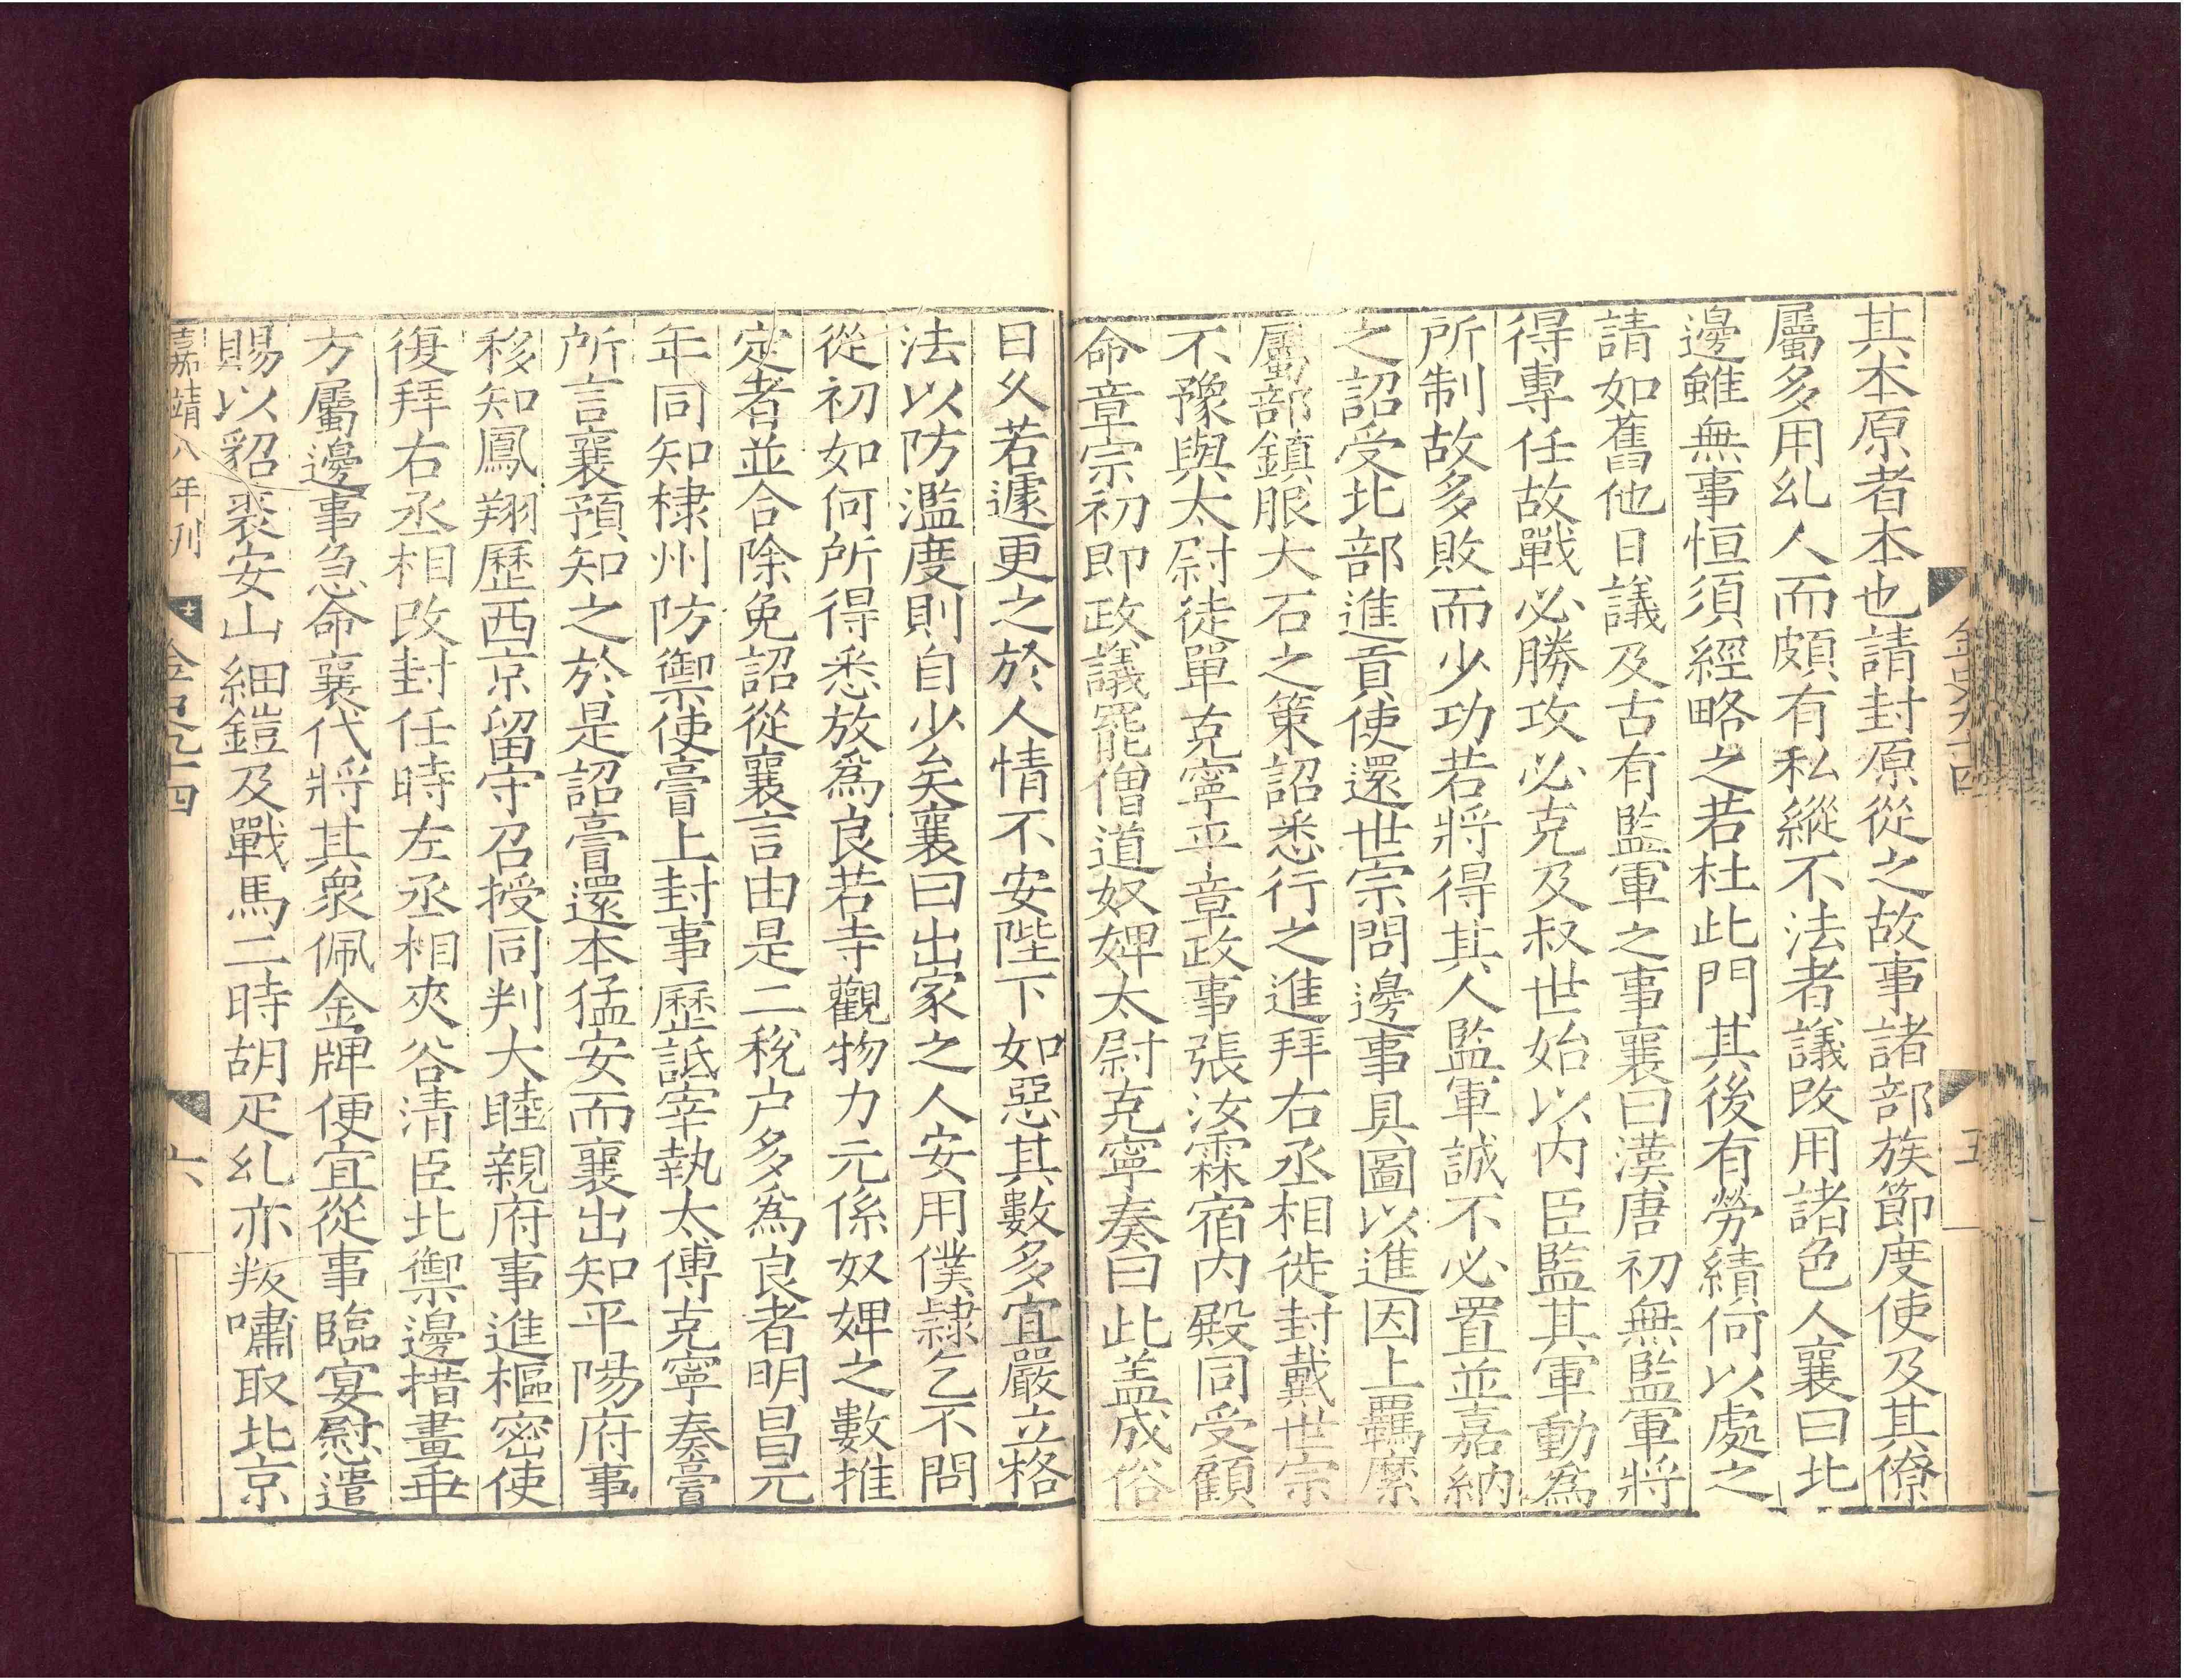 其本原者本也請封原從之故事諸部族節度使及其僚
屬多用乣人而頗有私縱不法者議改用諸色人襄曰北
邊雖無事恒須經略之若杜此門其後有勞績何以處之
請如舊他日議及古有監軍之事襄曰漢唐初無監軍將
得專任故戰必勝攻必克及叔世始以内臣監其軍動為
所制故多敗而少功若將得其人監軍誠不必置並嘉納
之詔受北部進貢使還世宗問邊事具圖以進因上羈縻
屬部鎮服大石之策詔悉行之進拜右丞相徙封戴世宗
不豫與太尉徒單克寧平章政事張汝霖宿内殿同受顧
命章宗初即政議罷僧道奴婢太尉克寧奏曰此盖成俗
日乆若遽更之於人情不安陛下如惡其數多宜嚴立格
法以防濫度則自少矣襄曰出家之人安用僕隷乞不問
從初如何所得悉放爲良若寺觀物力元係奴婢之數推
定者並合除免詔從襄言由是二稅户多爲良者明昌元
年同知棣州防禦使膏上封事歷詆宰執太傅克寧奏膏
所言襄預知之於是詔膏還本猛安而襄出知平陽府事
移知鳳翔歷西京留守召授同判大睦親府事進樞密使
復拜右丞相改封任時左丞相夾谷清臣北禦邊措畫乖
方屬邊事急命襄代將其衆佩金牌便宜從事臨宴慰遣
賜以貂裘安山細鎧及戰馬二時胡疋乣亦叛嘯取北京
嘉靖八年刊
金史九十四
六
金史九十四
五